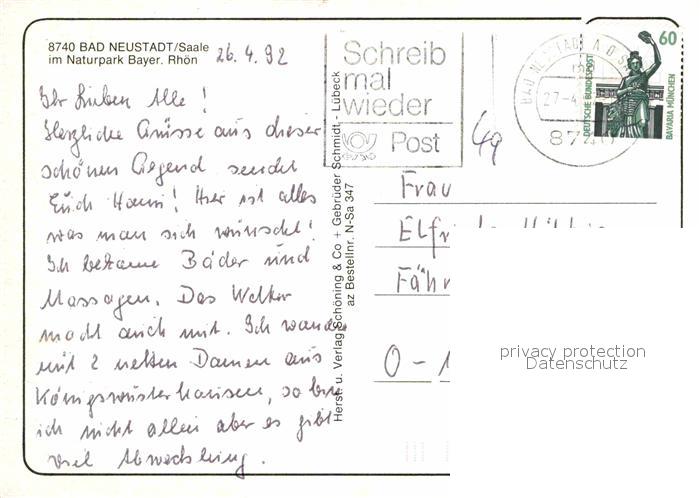 8740 BAD NEUSTADT/Saale
im Naturpark Bayer. Rhön
26.4.92
Ihr Lieben Alle!
Herzliche Grüsse aus dieser
schönen Gegend sendet
Euch Hanni! Hier ist alles
was man sich wünscht!
Ich bekomme Bäder und
Massagen. Das Wetter
macht auch mit. Ich wandere
mit 2 netten Damen aus
Königswusterhausen, so bin
ich nicht allein aber es gibt
viel Abwechslung.
Herst. u. Verlag Schöning & Co + Gebrüder Schmidt - Lübeck
az Bestellnr. N-Sa 347
Schreib
mal
wieder
Post
BAD NEUSTADT A D SAALE
27-4
8740
60
DEUTSCHE BUNDESPOST
BAVARIA MÜNCHEN
49
Frau
Elfr
Fähr
O-1
privacy protection
Datenschutz